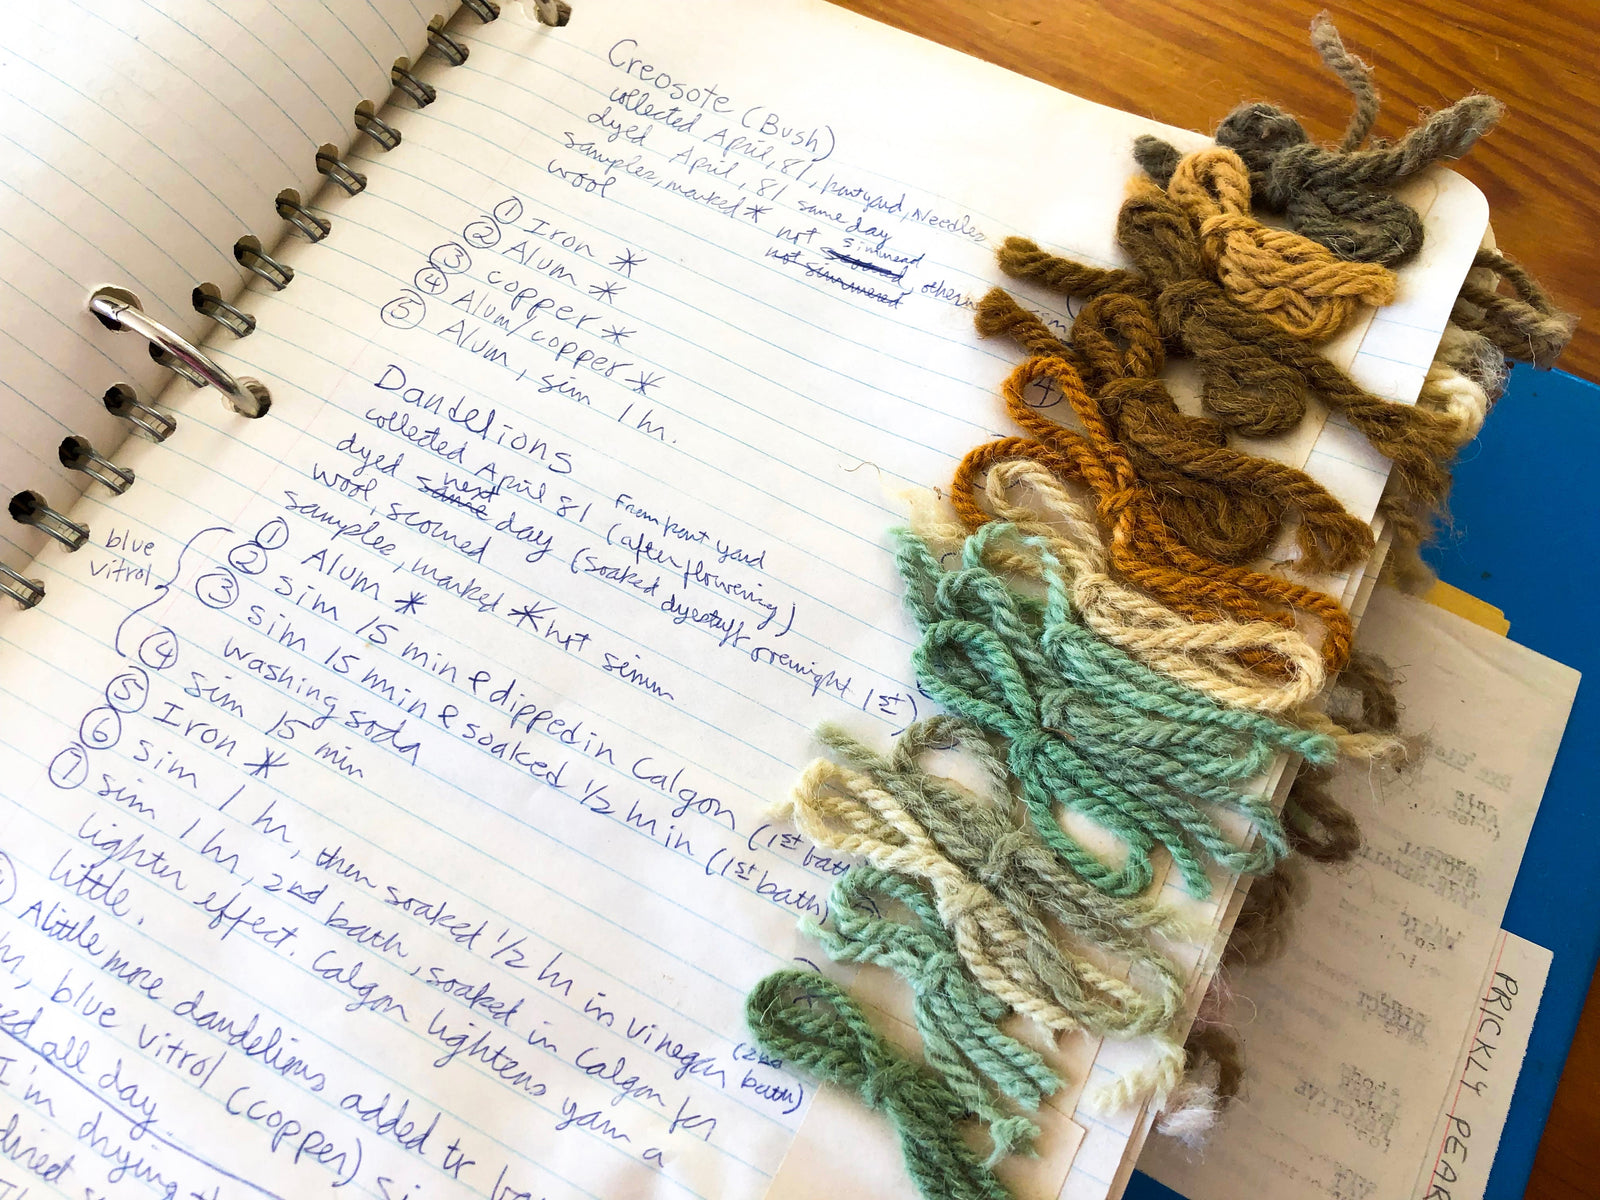 Creosote (Bush)
collected April, 81, frontyard, Needles
dyed April, 81 same day
samples, marked * not simmered, otherw
not simmered
wool
① Iron *
② Alum *
③ copper *
④ Alum/copper *
⑤ Alum, sim 1 hr.
4
Dandelions
collected April 81 From front yard (after flowering)
dyed same next day (soaked dyestuff overnight 1st)
wool, scoured
samples, marked * not simm
blue vitrol
① Alum *
② sim 15 min & dipped in Calgon (1st bath
③ sim 15 min & soaked 1/2 hr in (1st bath)
washing soda
④ sim 15 min
⑤ Iron *
⑥ sim 1 hr, then soaked 1/2 hr in vinegar (2nd bath)
⑦ sim 1 hr, 2nd bath, soaked in Calgon for
lighter effect. Calgon lightens yarn a
little.
A little more dandelions added to
blue vitrol (copper)
all day
I'm drying
direct
PRICKLY PEAR